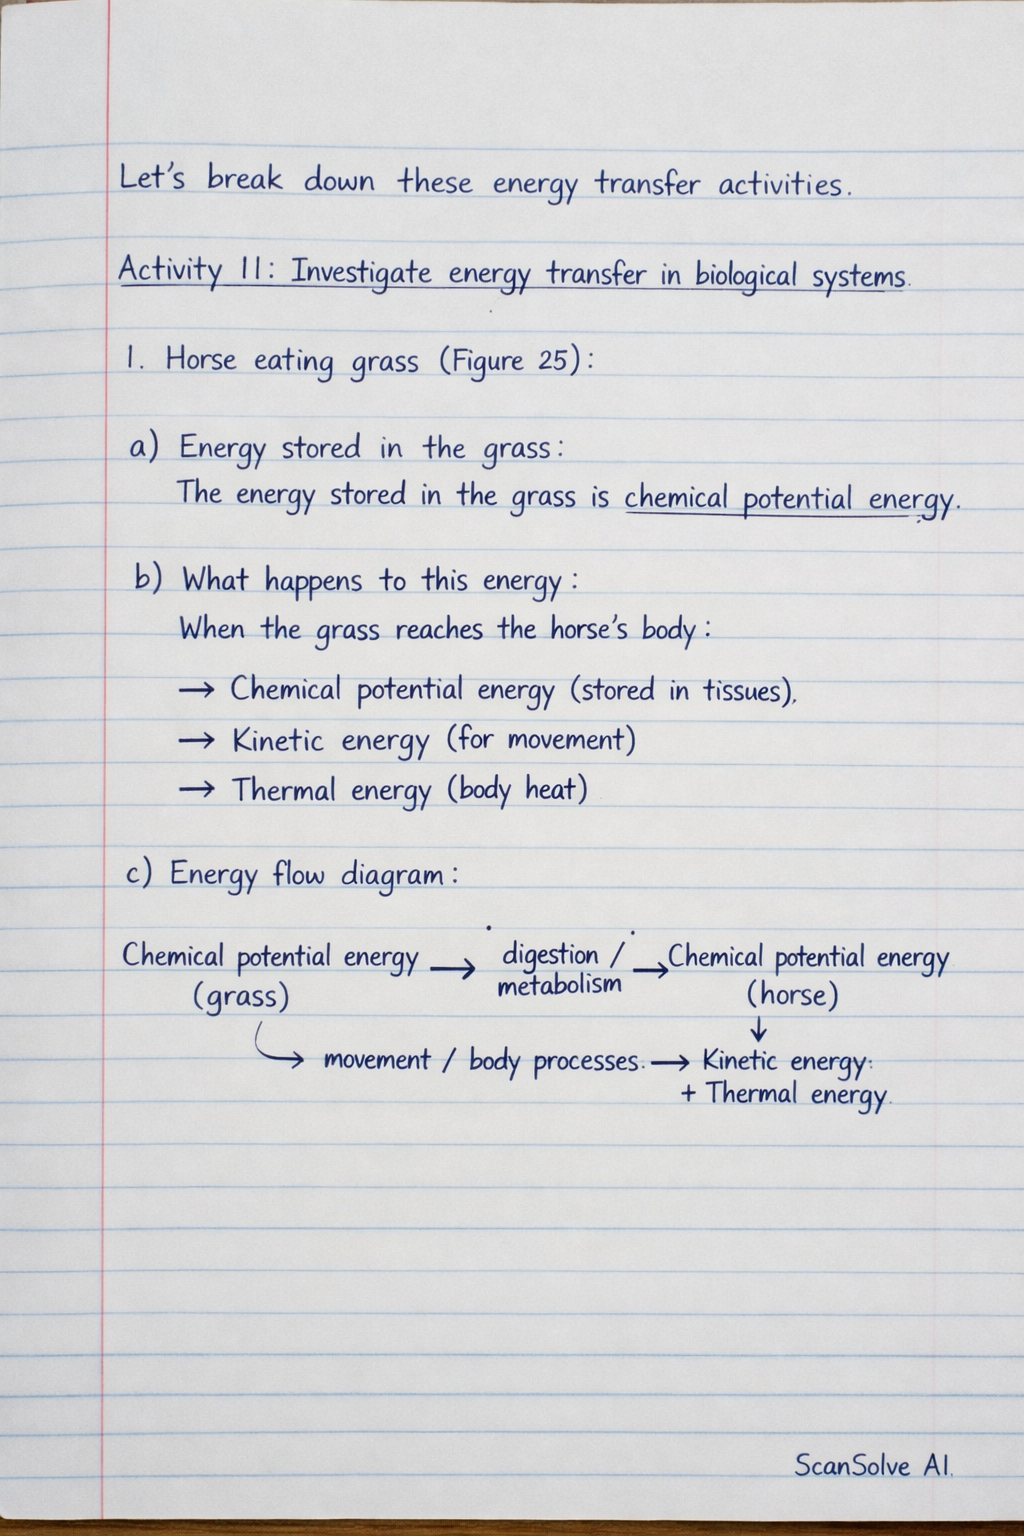 Let's break down these energy transfer activities.
Activity 11: Investigate energy transfer in biological systems.
1. Horse eating grass (Figure 25):
a) Energy stored in the grass:
The energy stored in the grass is chemical potential energy.
b) What happens to this energy:
When the grass reaches the horse's body:
→ Chemical potential energy (stored in tissues).
→ Kinetic energy (for movement)
→ Thermal energy (body heat)
c) Energy flow diagram:
Chemical potential energy → digestion / → Chemical potential energy
(grass) metabolism (horse)
↓
↳ movement / body processes. → Kinetic energy:
+ Thermal energy.
ScanSolve AI.